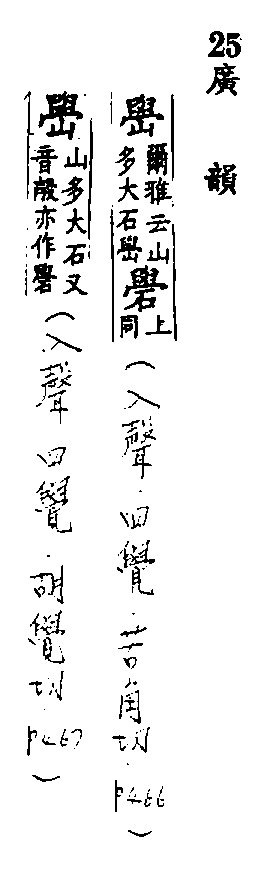 25 廣韻
嶨 爾雅云山多大石嶨 礐 上同 (入聲.四覺.苦角切 P466)
嶨 山多大石又音殻亦作礐 (入聲四覺.胡覺切 P467)